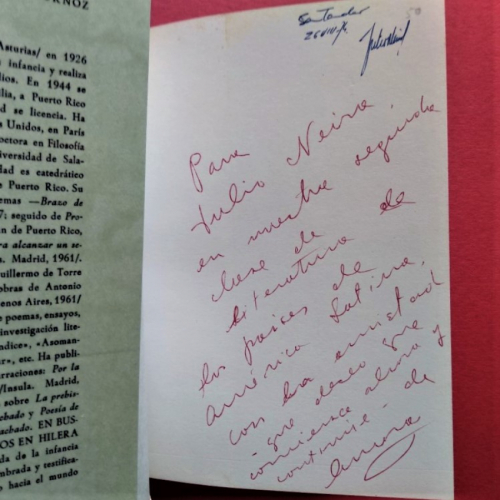 RNOZ
Asturias/ en 1926
infancia y realiza
dios. En 1944 se
ilia, a Puerto Rico
d se licencia. Ha
Unidos, en París
octora en Filosofía
iversidad de Sala-
ad es catedrático
Puerto Rico. Su
emas —Brazo de
7; seguido de Pro-
n de Puerto Rico,
ra alcanzar un se-
s. Madrid, 1961/.
uillermo de Torre
obras de Antonio
enos Aires, 1961/
e poemas, ensayos,
investigación lite-
ndice», «Asoman-
r», etc. Ha publi-
rraciones: Por la
/Insula. Madrid,
sobre La prehis-
achado y Poesía de
achado. EN BUS-
OS EN HILERA
da de la infancia
mbrada y testifica-
o hacia el mundo
Santander
Julio Neira
Para
Julio Neira,
en nuestra segunda
clase de
literatura de
los países de
América Latina,
con la amistad
- que deseo que
comience ahora y
continúe - de
Aurora